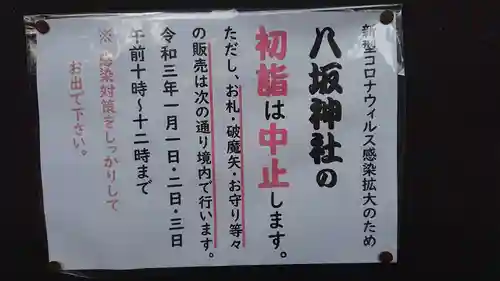 新型コロナウィルス感染拡大のため
八坂神社の
初詣は中止します。
ただし、お札・破魔矢・お守り等々
の販売は次の通り境内で行います。
令和三年一月一日・二日・三日
午前十時～十二時まで
※感染対策をしっかりして
お出で下さい。